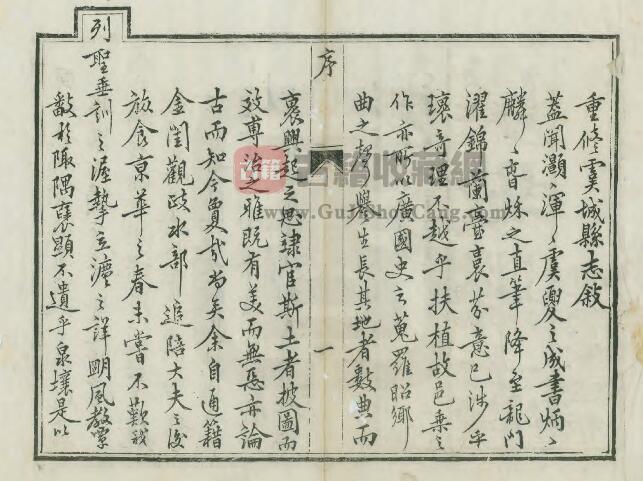 重修虞城縣志敘
蓋聞灝〻渾〻虞夏之成書炳〻
麟〻旾秌之直筆降至龍門
濯錦蘭臺裛芬意已涉乎
瓌奇理不越乎扶植故邑乘之
作亦所以廣國史之蒐羅昭鄉
曲之譽生長其地者數典而
序
一
裛興起之思隸官斯土者披圖而
效專治之雅既有美而無惡亦論
古而知今夐哉尚矣余自通籍
金閨觀政水部追陪大夫之後
飲食京華之春未嘗不歎我
列聖垂訓之渥摯立灋之詳明風教覃
敷於陬隅襃顯不遺乎泉壤是以
古籍
古籍收藏網
www.GuJiShouCang.com